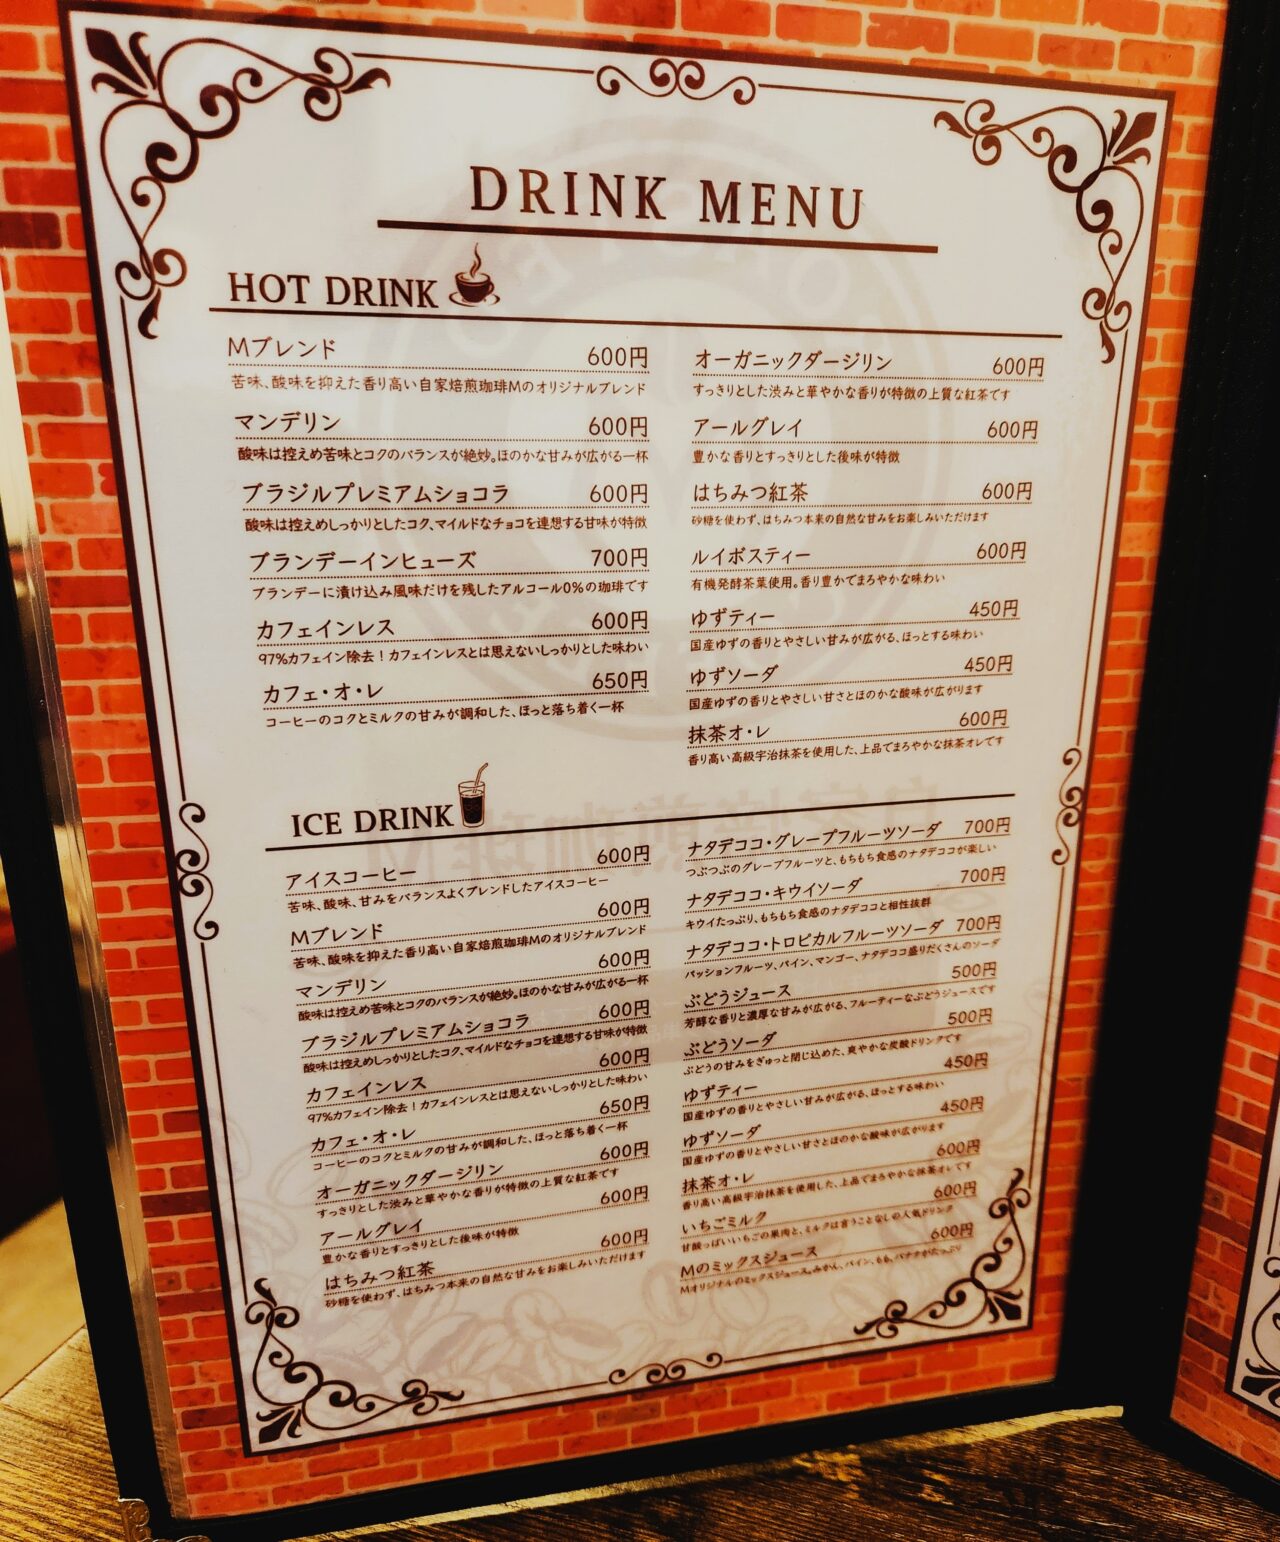 DRINK MENU
HOT DRINK
Mブレンド 600円
苦味、酸味を抑えた香り高い自家焙煎珈琲Mのオリジナルブレンド
マンデリン 600円
酸味は控えめ苦味とコクのバランスが絶妙。ほのかな甘みが広がる一杯
ブラジルプレミアムショコラ 600円
酸味は控えめしっかりとしたコク、マイルドなチョコを連想する甘味が特徴
ブランデーインヒューズ 700円
ブランデーに漬け込み風味だけを残したアルコール0%の珈琲です
カフェインレス 600円
97%カフェイン除去！カフェインレスとは思えないしっかりとした味わい
カフェ・オ・レ 650円
コーヒーのコクとミルクの甘みが調和した、ほっと落ち着く一杯
オーガニックダージリン 600円
すっきりとした渋みと華やかな香りが特徴の上質な紅茶です
アールグレイ 600円
豊かな香りとすっきりとした後味が特徴
はちみつ紅茶 600円
砂糖を使わず、はちみつ本来の自然な甘みをお楽しみいただけます
ルイボスティー 600円
有機発酵茶葉使用。香り豊かでまろやかな味わい
ゆずティー 450円
国産ゆずの香りとやさしい甘みが広がる、ほっとする味わい
ゆずソーダ 450円
国産ゆずの香りとやさしい甘さとほのかな酸味が広がります
抹茶オ・レ 600円
香り高い高級宇治抹茶を使用した、上品でまろやかな抹茶オレです
ICE DRINK
アイスコーヒー 600円
苦味、酸味、甘みをバランスよくブレンドしたアイスコーヒー
Mブレンド 600円
苦味、酸味を抑えた香り高い自家焙煎珈琲Mのオリジナルブレンド
マンデリン 600円
酸味は控えめ苦味とコクのバランスが絶妙。ほのかな甘みが広がる一杯
ブラジルプレミアムショコラ 600円
酸味は控えめしっかりとしたコク、マイルドなチョコを連想する甘味が特徴
カフェインレス 600円
97%カフェイン除去！カフェインレスとは思えないしっかりとした味わい
カフェ・オ・レ 650円
コーヒーのコクとミルクの甘みが調和した、ほっと落ち着く一杯
オーガニックダージリン 600円
すっきりとした渋みと華やかな香りが特徴の上質な紅茶です
アールグレイ 600円
豊かな香りとすっきりとした後味が特徴
はちみつ紅茶 600円
砂糖を使わず、はちみつ本来の自然な甘みをお楽しみいただけます
ナタデココ・グレープフルーツソーダ 700円
つぶつぶのグレープフルーツと、もちもち食感のナタデココが楽しい
ナタデココ・キウイソーダ 700円
キウイたっぷり、もちもち食感のナタデココと相性抜群
ナタデココ・トロピカルフルーツソーダ 700円
パッションフルーツ、パイン、マンゴー、ナタデココ盛りだくさんのソーダ
ぶどうジュース 500円
芳醇な香りと濃厚な甘みが広がる、フルーティーなぶどうジュースです
ぶどうソーダ 500円
ぶどうの甘みをぎゅっと閉じ込めた、爽やかな炭酸ドリンクです
ゆずティー 450円
国産ゆずの香りとやさしい甘みが広がる、ほっとする味わい
ゆずソーダ 450円
国産ゆずの香りとやさしい甘さとほのかな酸味が広がります
抹茶オ・レ 600円
香り高い高級宇治抹茶を使用した、上品でまろやかな抹茶オレです
いちごミルク 600円
甘酸っぱいいちごの果肉と、ミルクは言うことなしの人気ドリンク
Mのミックスジュース 600円
Mオリジナルのミックスジュース。みかん、パイン、もも、バナナがたっぷり